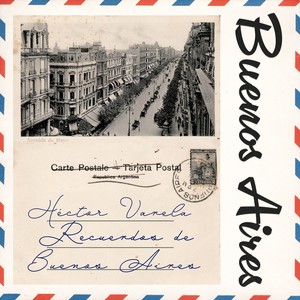 Buenos Aires
Carte Postale — Tarjeta Postal
Republica Argentina
Héctor Varela
Recuerdos de
Buenos Aires